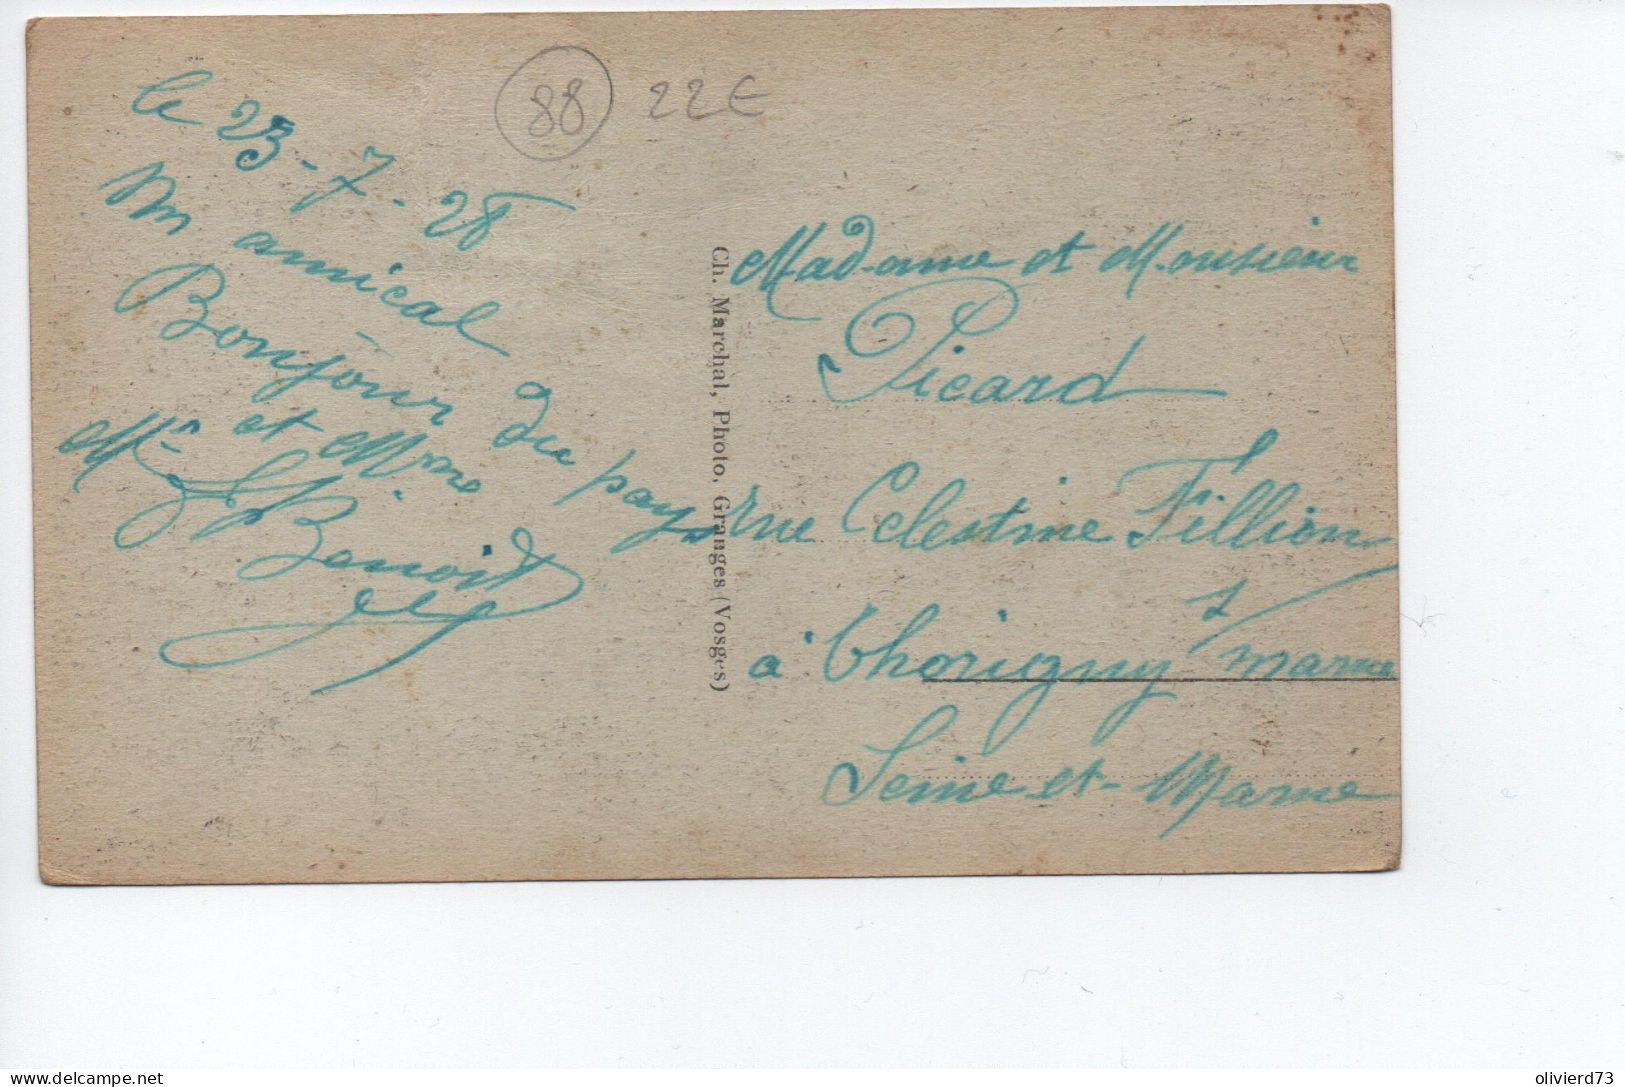 88 22€
le 23-7-28
Un amical
Bonjour du pays
Mr et Mme
Benoit
Ch. Marchal, Photo, Granges (Vosges)
Madame et Monsieur
Picard
rue Celestine Fillion
à Thorigny s/ marne
Seine-et-Marne
olivierd73